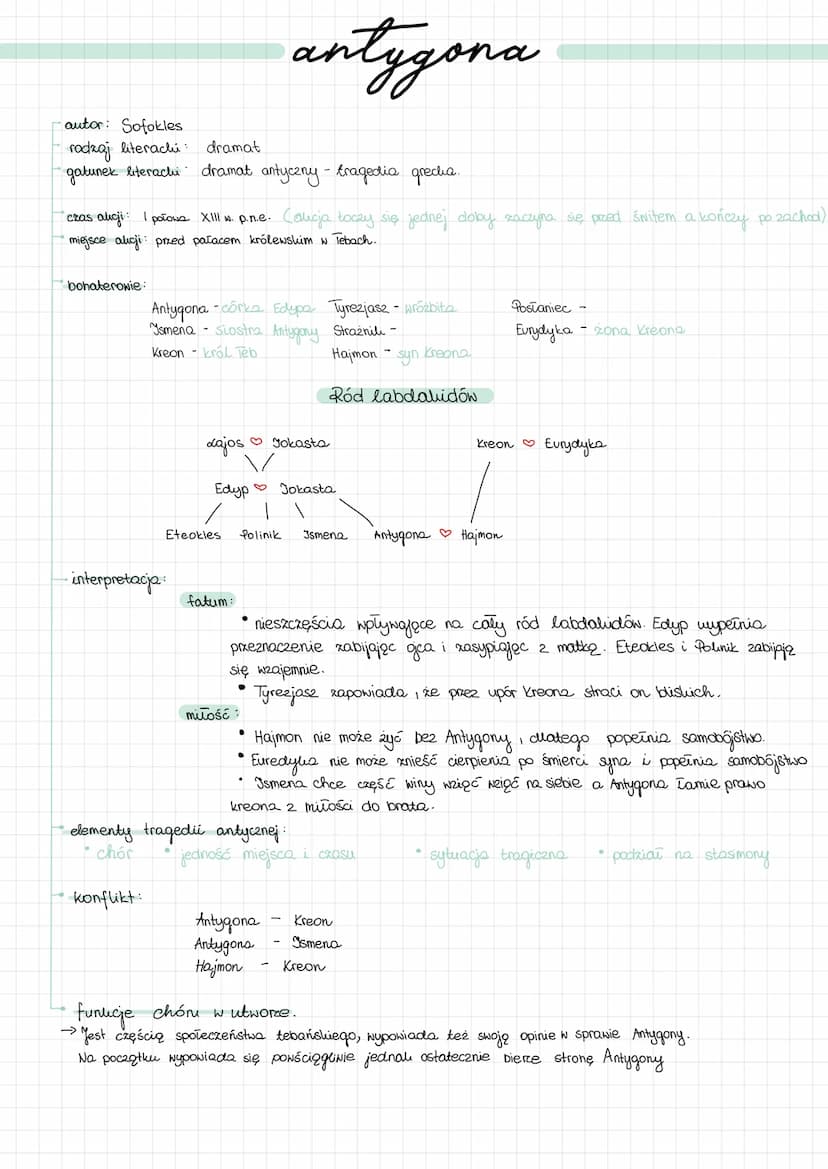 antygona
autor: Sofokles
rodzaj literacki: dramat
gatunek literacki: dramat antyczny - tragedia grecka.
czas akcji: I połowa XIII w. p.n.e. (akcja toczy się jednej doby zaczyna się przed świtem a kończy po zachod)
miejsce akcji: przed pałacem królewskim w Tebach.
bohaterowie:
Antygona - córka Edypa Tyrezjasz - wróżbita Posłaniec -
Ismena - siostra Antygony Strażnik - Eurydyka - żona Kreona
Kreon - król Teb Hajmon - syn Kreona
Ród labdakidów
Lajos ♡ Jokasta Kreon ♡ Eurydyka
Edyp ♡ Jokasta
Eteokles Polinik Ismena Antygona ♡ Hajmon
interpretacja:
fatum:
• nieszczęścia wpływające na cały ród labdakidów. Edyp wypełnia
przeznaczenie zabijając ojca i zasypiając z matką. Eteokles i Polinik zabijają
się wzajemnie.
• Tyrezjasz zapowiada, że przez upór Kreona straci on bliskich.
miłość:
• Hajmon nie może żyć bez Antygony, dlatego popełnia samobójstwo.
• Euredyka nie może znieść cierpienia po śmierci syna i popełnia samobójstwo
• Ismena chce część winy wziąć wziąć na siebie a Antygona łamie prawo
kreona z miłości do brata.
elementy tragedii antycznej:
• chór • jedność miejsca i czasu • sytuacja tragiczna • podział na stasmony
konflikt:
Antygona - Kreon
Antygona - Ismena
Hajmon - Kreon
funkcje chóru w utworze.
→ Jest częścią społeczeństwa tebańskiego, wypowiada też swoją opinie w sprawie Antygony.
Na początku wypowiada się powściągliwie jednak ostatecznie bierze stronę Antygony